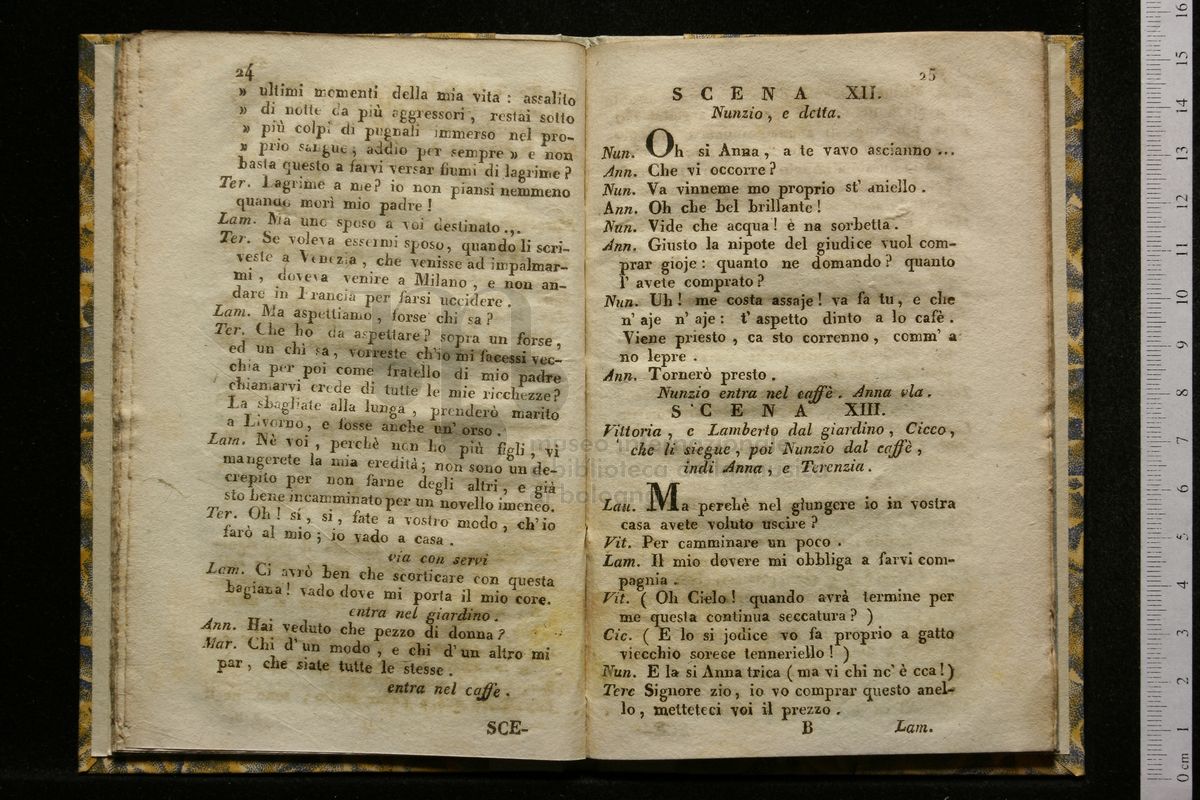 24
» ultimi momenti della mia vita : assalito
» di notte da più aggressori , restai sotto
» più colpi di pugnali immerso nel pro-
» prio sangue ; addio per sempre » e non
basta questo a farvi versar fiumi di lagrime ?
Ter. Lagrime a me ? io non piansi nemmeno
quando morì mio padre !
Lam. Ma uno sposo a voi destinato .,.
Ter. Se voleva essermi sposo, quando li scri-
veste a Venezia , che venisse ad impalmar-
mi , doveva venire a Milano , e non an-
dare in Francia per farsi uccidere .
Lam. Ma aspettiamo , forse chi sa ?
Ter. Che ho da aspettare ? sopra un forse ,
ed un chi sa , vorreste ch'io mi facessi vec-
chia per poi come fratello di mio padre
chiamarvi erede di tutte le mie ricchezze ?
La sbagliate alla lunga , prenderò marito
a Livorno, e fosse anche un' orso .
Lam. Nè voi , perchè non ho più figli , vi
mangerete la mia eredità ; non sono un de-
crepito per non farne degli altri , e già
sto bene incamminato per un novello imeneo.
Ter. Oh ! sì , sì , fate a vostro modo , ch'io
farò al mio ; io vado a casa .
via con servi
Lam. Ci avrò ben che scorticare con questa
bagiana ! vado dove mi porta il mio core.
entra nel giardino .
Ann. Hai veduto che pezzo di donna ?
Mar. Chi d' un modo , e chi d' un altro mi
par , che siate tutte le stesse .
entra nel caffè .
SCE-
25
SCENA XII.
Nunzio , e detta.
Nun. Oh si Anna , a te vavo ascianno ...
Ann. Che vi occorre ?
Nun. Va vinneme mo proprio st' aniello .
Ann. Oh che bel brillante !
Nun. Vide che acqua ! è na sorbetta .
Ann. Giusto la nipote del giudice vuol com-
prar gioje : quanto ne domando ? quanto
l' avete comprato ?
Nun. Uh ! me costa assaje ! va fa tu , e che
n' aje n' aje : t' aspetto dinto a lo cafè .
Viene priesto , ca sto correnno , comm' a
no lepre .
Ann. Tornerò presto .
Nunzio entra nel caffè . Anna via.
SCENA XIII.
Vittoria , e Lamberto dal giardino , Cicco ,
che li siegue , poi Nunzio dal caffè ,
indi Anna , e Terenzia .
Lau. Ma perchè nel giungere io in vostra
casa avete voluto uscire ?
Vit. Per camminare un poco .
Lam. Il mio dovere mi obbliga a farvi com-
pagnia .
Vit. ( Oh Cielo ! quando avrà termine per
me questa continua seccatura ? )
Cic. ( E lo si jodice vo fa proprio a gatto
viecchio sorece tenneriello ! )
Nun. E la si Anna trica ( ma vi chi nc' è cca ! )
Tere Signore zio , io vo comprar questo anel-
lo , metteteci voi il prezzo .
B Lam.
museo internazionale
biblioteca della musica
di bologna